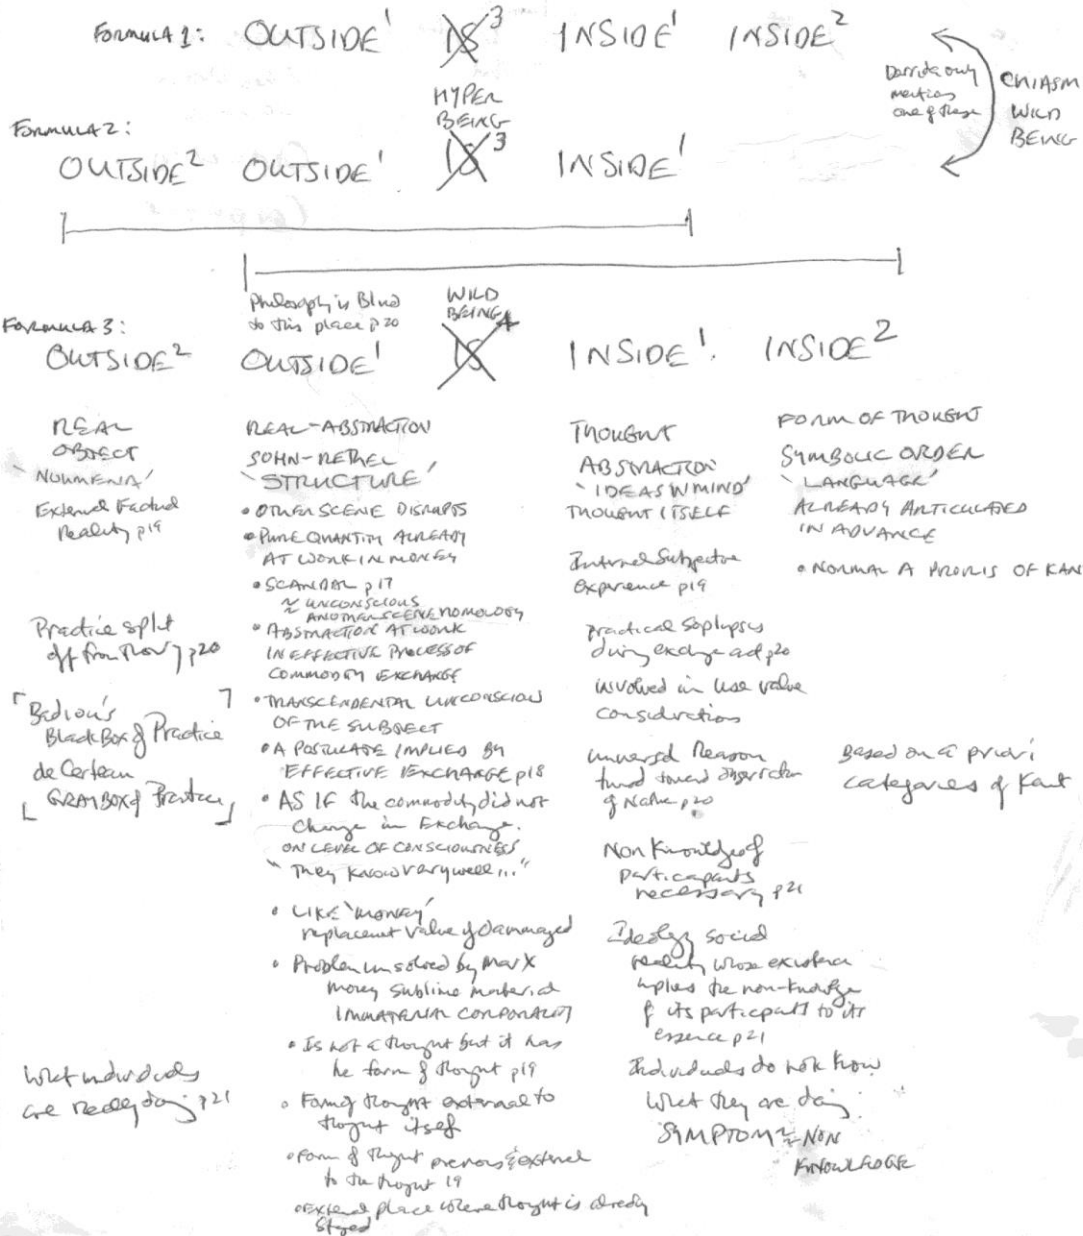 FORMULA 1: OUTSIDE¹ IS³ INSIDE¹ INSIDE²
HYPER
BEING
Derrida only
mentions
one of these
CHIASM
WILD
BEING
FORMULA 2:
OUTSIDE² OUTSIDE¹ IS³ INSIDE¹
Philosophy is Blind
to this place p20
WILD
BEING
FORMULA 3:
OUTSIDE² OUTSIDE¹ IS⁴ INSIDE¹. INSIDE²
REAL
OBJECT
'NOUMENA'
External Factual
Reality p19
Practice split
off from Theory p20
Badiou's
Black Box of Practice
de Certeau
GRAY BOX of Practice
What individuals
are really doing p21
REAL-ABSTRACTION
SOHN-RETHEL
'STRUCTURE'
• OTHER SCENE DISRUPTS
• PURE QUANTITY ALREADY
AT WORK IN MONEY
• SCANDAL p17
≈ UNCONSCIOUS
ANOTHER SCENE HOMOLOGY
• ABSTRACTION AT WORK
IN EFFECTIVE PROCESS OF
COMMODITY EXCHANGE
• TRANSCENDENTAL UNCONSCIOUS
OF THE SUBJECT
• A POSTULATE IMPLIED BY
EFFECTIVE EXCHANGE p18
• AS IF the commodity did not
change in Exchange.
ON LEVEL OF CONSCIOUSNESS
"They know very well..."
• LIKE 'MONEY'
replacement value of Dammaged
• Problem unsolved by Marx
money sublime material
IMMATERIAL CORPORALITY
• Is not a thought but it has
the form of thought p19
• Form of thought external to
thought itself
• Form of thought previous & external
to the thought 19
• External place where thought is already
staged
THOUGHT
ABSTRACTION
'IDEAS IN MIND'
THOUGHT ITSELF
Internal Subjective
Experience p19
practical Solipsism
during exchange act p20
involved in use value
considerations
universal Reason
turned toward
of Nature p20
Non Knowledge of
participants
necessary p21
Ideology social
reality whose existence
implies the non-knowledge
of its participants to its
essence p21
Individuals do not know
what they are doing
SYMPTOM ≈ NON
KNOWLEDGE
FORM OF THOUGHT
SYMBOLIC ORDER
'LANGUAGE'
ALREADY ARTICULATED
IN ADVANCE
• NORMAL A PRIORIS OF KAN
Based on a priori
categories of Kant